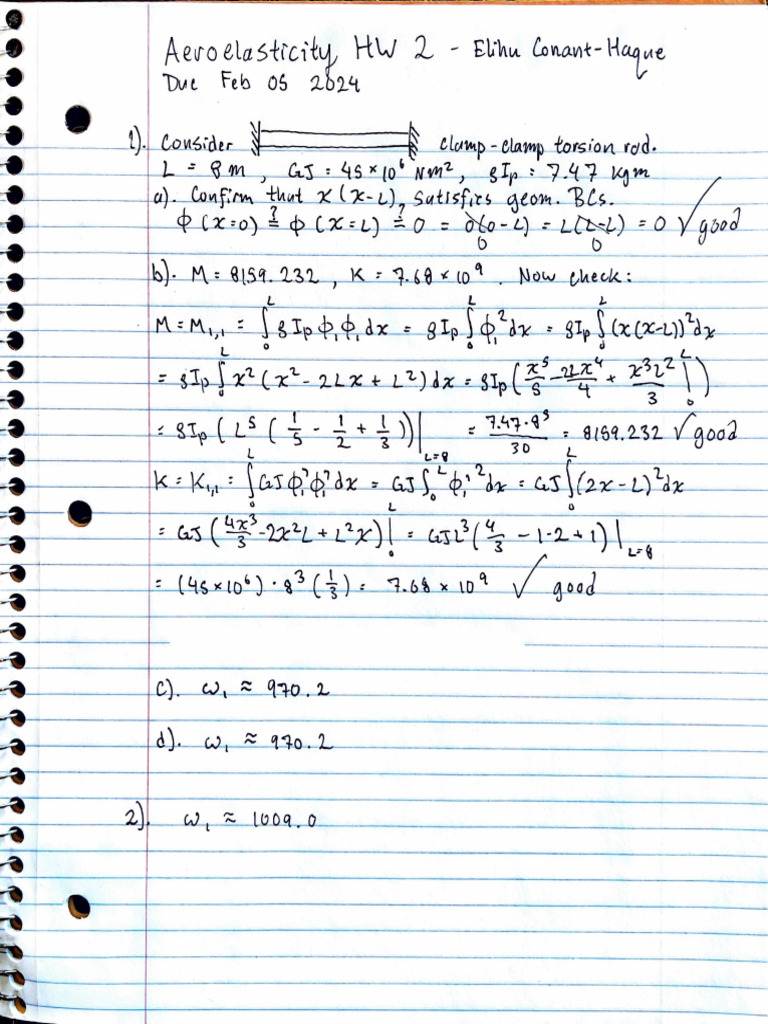 Aeroelasticity HW 2 - Elihu Conant-Haque
Due Feb 05 2024
1). Consider clamp-clamp torsion rod.
L = 8 m, GJ = 45 × 10⁶ Nm², ρIp = 7.47 kgm
a). Confirm that x(x-L), satisfies geom. BCs.
ϕ(x=0) ≟ ϕ(x=L) ≟ 0 = 0(0-L) = L(L-L) = 0 ✓ good
0 0
b). M = 8159.232, K = 7.68 × 10⁹. Now check:
M = M₁,₁ = ∫₀ᴸ ρIp ϕ₁ϕ₁dx = ρIp ∫₀ᴸ ϕ₁²dx = ρIp ∫₀ᴸ (x(x-L))²dx
= ρIp ∫₀ᴸ x²(x² - 2Lx + L²)dx = ρIp (x⁵/5 - 2Lx⁴/4 + x³L²/3 |₀ᴸ)
= ρIp (L⁵ (1/5 - 1/2 + 1/3))|L=8 = 7.47·8⁵/30 = 8159.232 ✓ good
K = K₁,₁ = ∫₀ᴸ GJ ϕ₁'ϕ₁'dx = GJ ∫₀ᴸ ϕ₁'²dx = GJ ∫₀ᴸ (2x - L)²dx
= GJ (4x³/3 - 2x²L + L²x)|₀ᴸ = GJL³(4/3 - 1·2 + 1)|L=8
= (45×10⁶)·8³(1/3) = 7.68 × 10⁹ ✓ good
c). ω₁ ≈ 970.2
d). ω₁ ≈ 970.2
2). ω₁ ≈ 1009.0